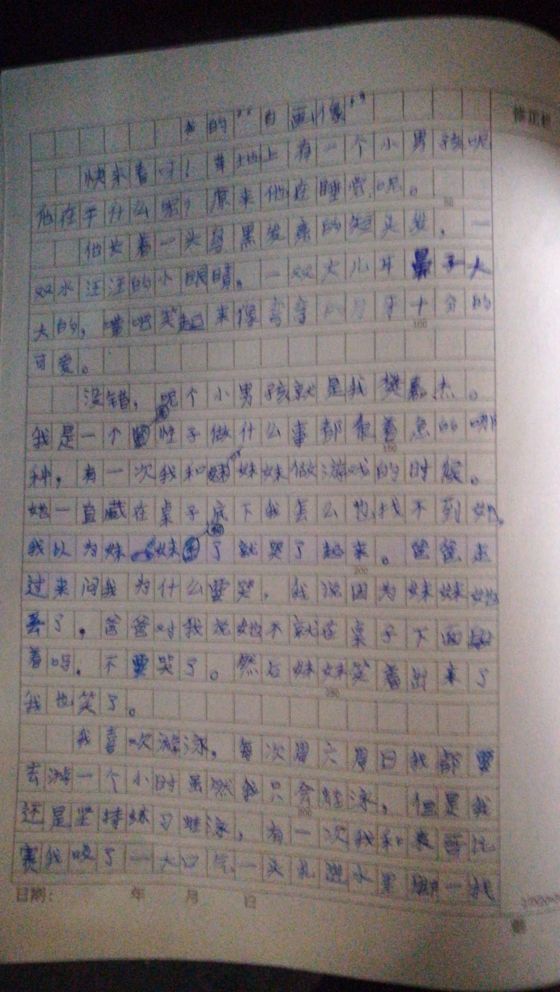 我的“自画像”
快来看呀！草地上有一个小男孩呢
他在干什么呢？原来他在睡觉呢。
他长着一头乌黑发亮的短头发，一
双水汪汪的小眼睛。一双大儿耳鼻子大
大的，嘴吧笑起来像弯弯的月牙十分的
可爱。
没错，呢个小男孩就是我樊嘉杰。
我是一个急性子做什么事都很着急的哪
种，有一次我和妹妹做游戏的时候。
她一直藏在桌子底下我怎么也找不到她。
我以为妹妹丢了就哭了起来。爸爸走
过来问我为什么要哭，我说因为妹妹她
丢了，爸爸对我说她不就在桌子下面
着吗，不要哭了。然后妹妹笑着出来了
我也笑了。
我喜欢游泳，每次周六周日我都要
去游一个小时虽然我只会蛙泳，但是我
还是坚持练习蛙泳，有一次我和比
赛我吸了一大口气，一头扎进水里脚一
日期： 年 月 日